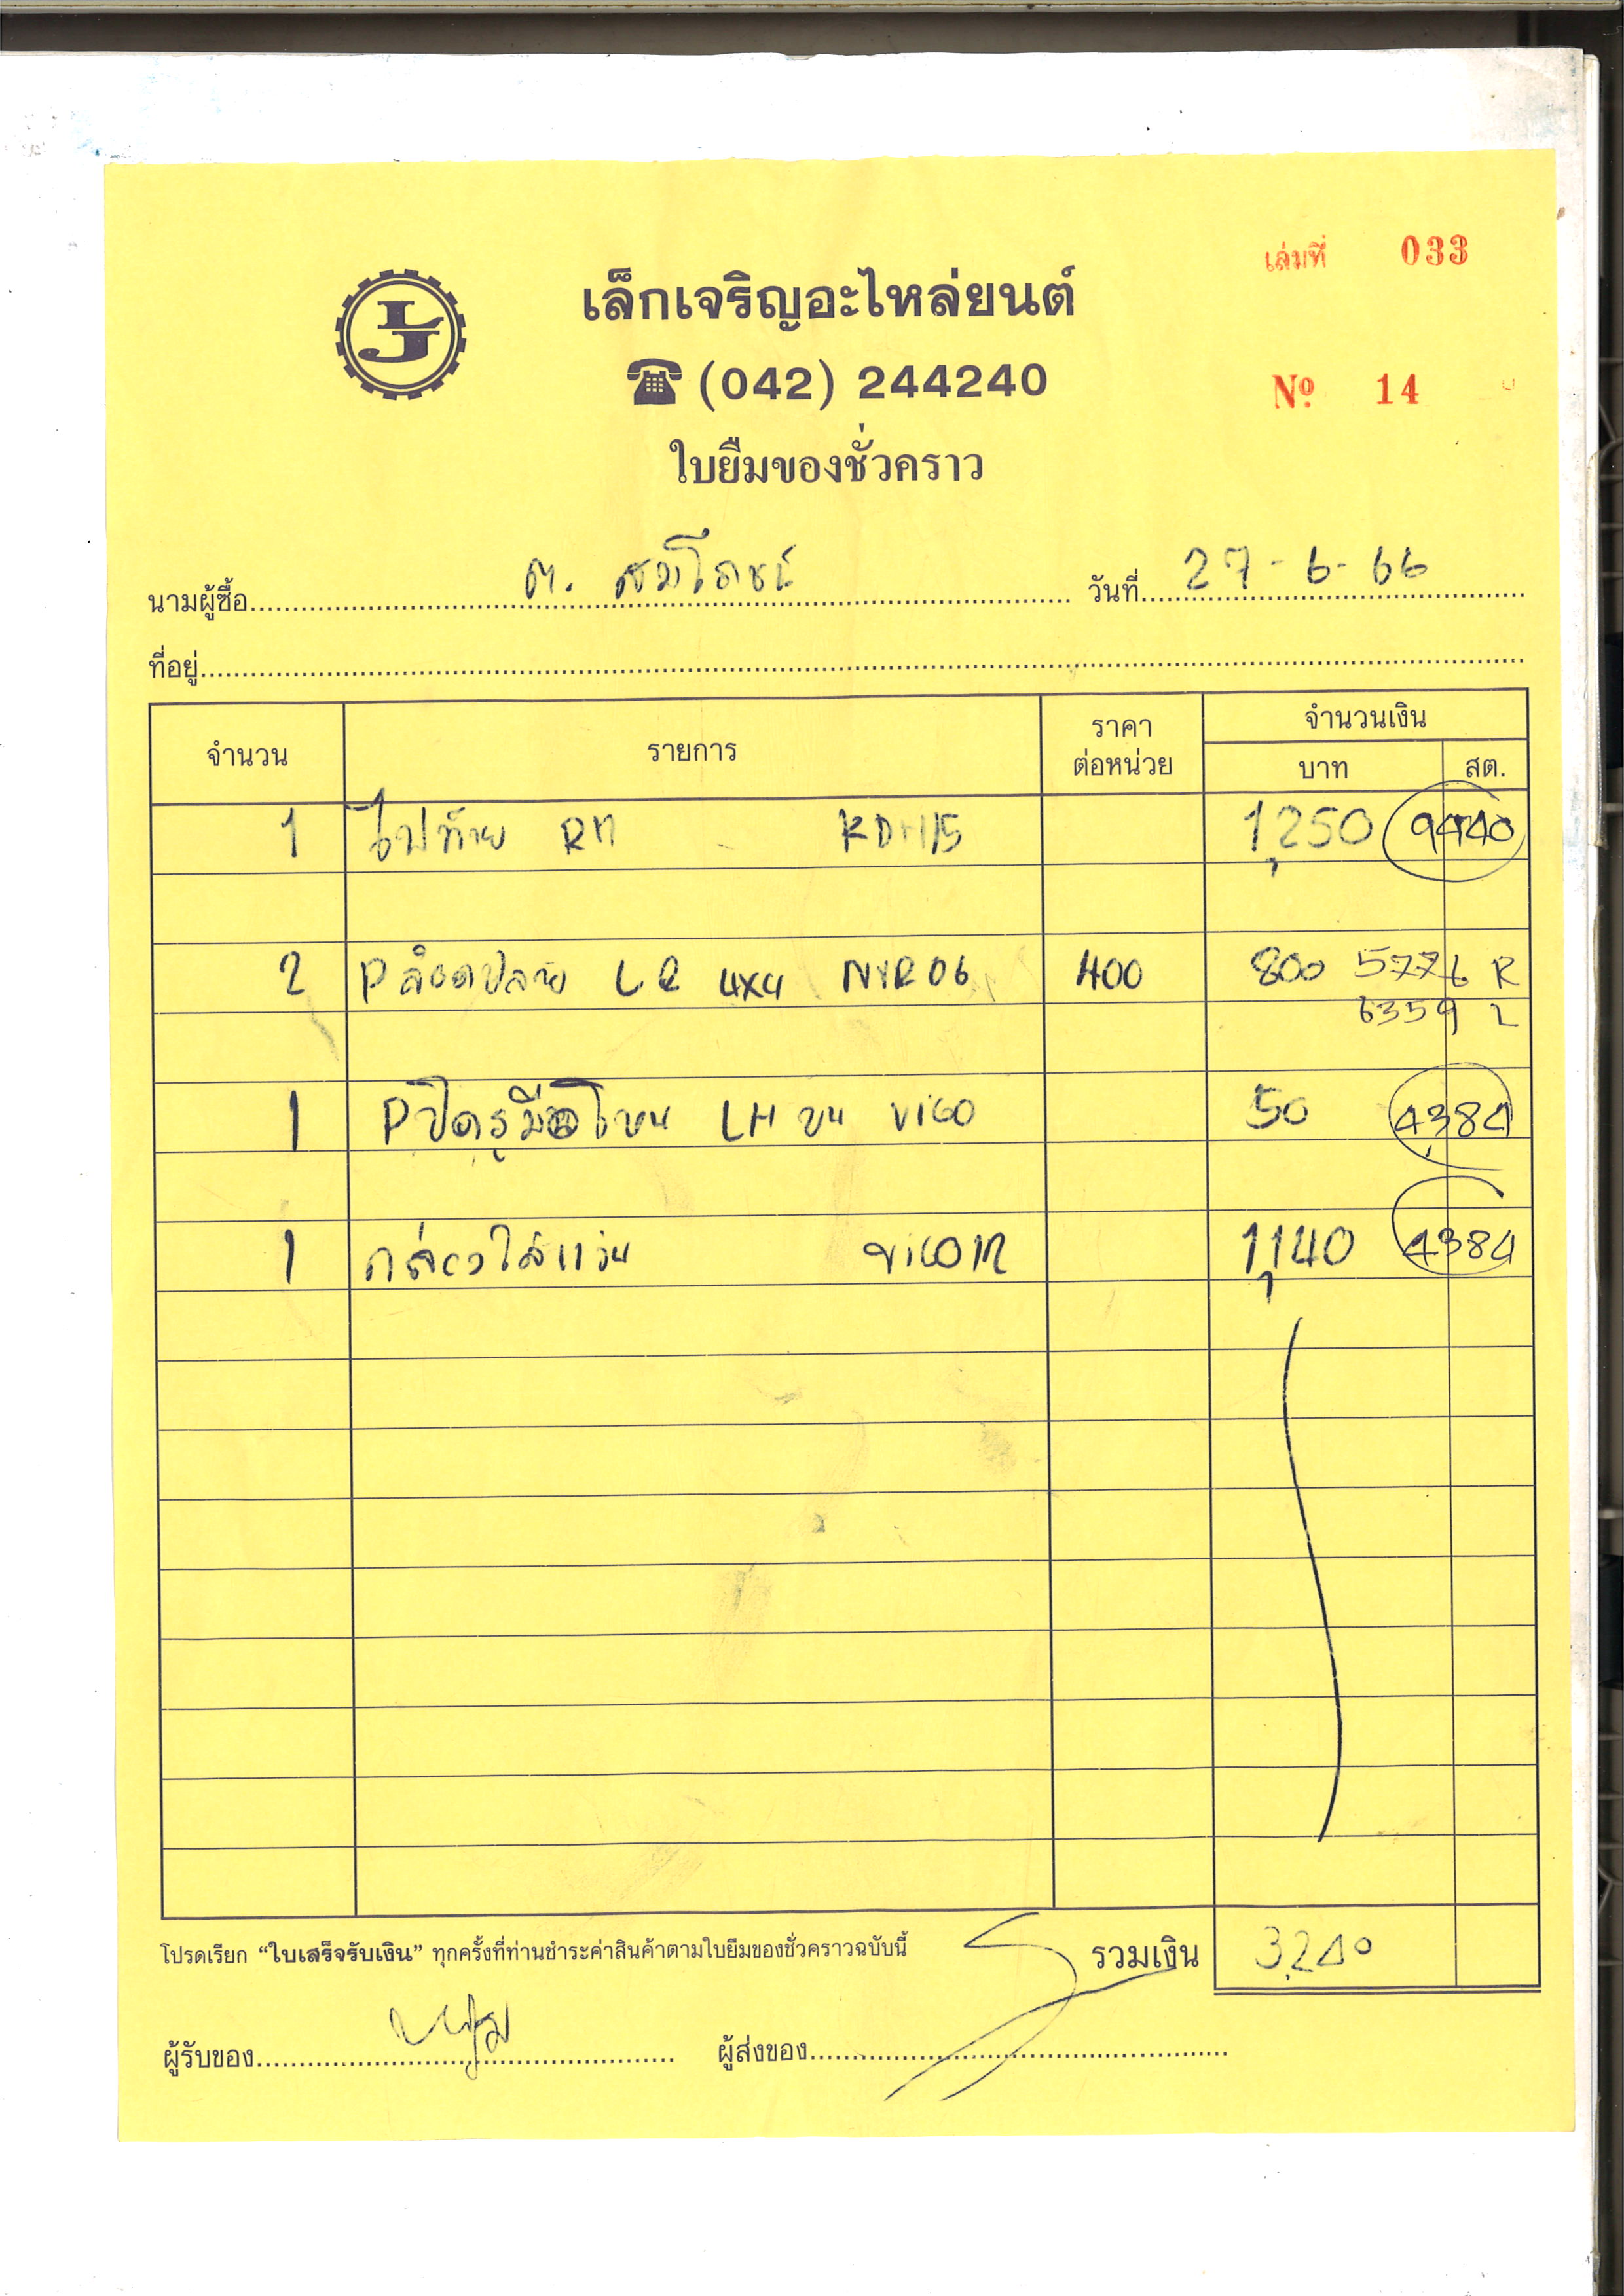 เล่มที่ 033
LJ
เล็กเจริญอะไหล่ยนต์
(042) 244240
Nº. 14
ใบยืมของชั่วคราว
นามผู้ซื้อ วันที่ 27-6-66
ที่อยู่
จำนวน รายการ ราคาต่อหน่วย จำนวนเงิน
บาท สต.
1 ไฟท้าย RH 1,250 9440
2 Pล๊อคปลาย LR 4x4 NYR06 400 800 5776 R
6359 L
1 Pปิดรูมือโหน LH บน VIGO 50 4,384
1 กล่องใส่แว่น VIGO 1,140 4384
โปรดเรียก “ใบเสร็จรับเงิน” ทุกครั้งที่ท่านชำระค่าสินค้าตามใบยืมของชั่วคราวฉบับนี้ รวมเงิน 3,240
ผู้รับของ ผู้ส่งของ